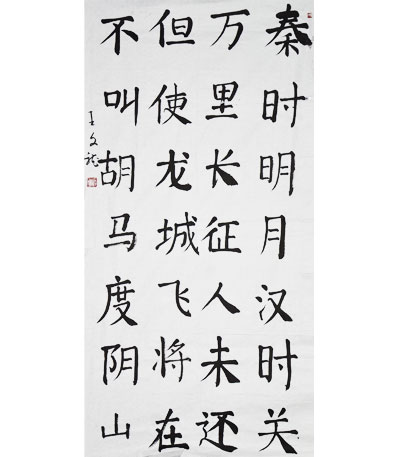 秦时明月汉时关
万里长征人未还
但使龙城飞将在
不叫胡马度阴山
王文龙